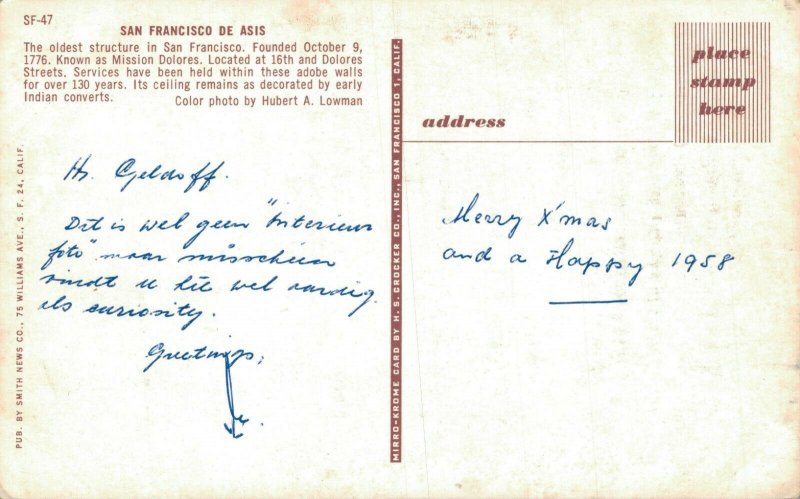 SF-47
SAN FRANCISCO DE ASIS
The oldest structure in San Francisco. Founded October 9,
1776. Known as Mission Dolores. Located at 16th and Dolores
Streets. Services have been held within these adobe walls
for over 130 years. Its ceiling remains as decorated by early
Indian converts. Color photo by Hubert A. Lowman
PUB. BY SMITH NEWS CO., 75 WILLIAMS AVE., S. F. 24, CALIF.
Hr. Geldoff.
Dit is wel geen "Interieur
foto" maar misschien
vindt u hit wel aardig
als curiosity.
Greetings,
MIRRO-KROME CARD BY H. S. CROCKER CO., INC., SAN FRANCISCO 1, CALIF.
place
stamp
here
address
Merry X'mas
and a Happy 1958